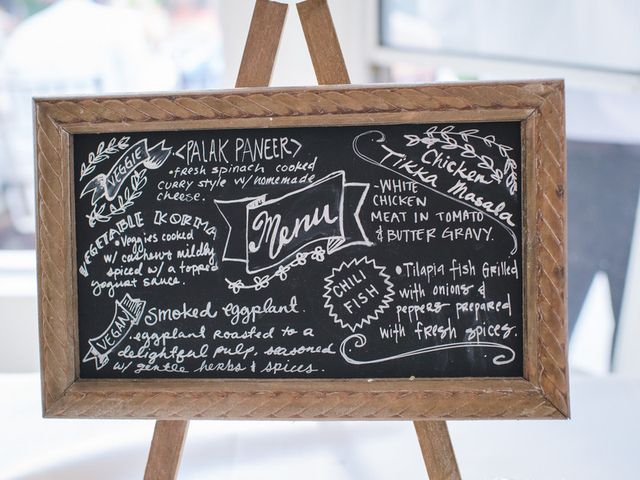 VEGGIE
<PALAK PANEER>
•fresh spinach cooked
curry style w/ homemade
cheese.
VEGETABLE KORMA
•Veggies cooked
w/ cashew & mildly
spiced w/ a topped
yogurt sauce.
VEGAN
Smoked eggplant.
eggplant roasted to a
delightful pulp, seasoned
w/ gentle herbs & spices.
Menu
Chicken
Tikka Masala
-WHITE
CHICKEN
MEAT IN TOMATO
& BUTTER GRAVY.
CHILI
FISH
•Tilapia fish Grilled
with onions &
peppers prepared
with fresh spices.